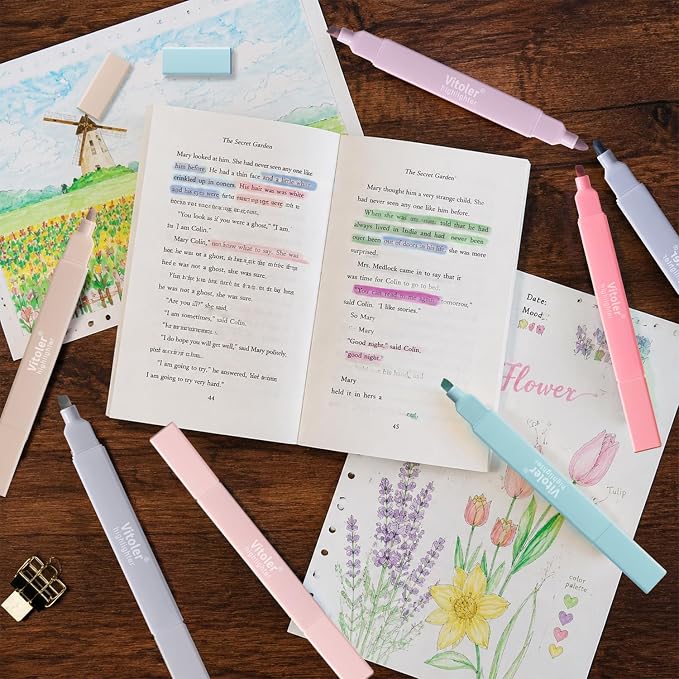 Vitoler®
highlighter
The Secret Garden
Mary looked at him. She had never seen any one like
him before. He had a thin face and a little white
crinkled up in coners. His hair was was white
and his eyes were
"You look as if you were a ghost," I am.
"I am," said Colin.
Mary Colin, not know what to say. She was
he was not a ghost, she was sure.
he was not a ghost, she was sure.
"Are you ill?" she said.
"I am sometoes," said Colin.
"I do hope you will get well," said Mary politely.
"I am going to try," he answered,
"I am going to try very hard."
44
The Secret Garden
Mary thought him a very strange child. She
had never seen any one like him before.
When she was told that he had
always lived in India and had never been
ever been out of doors in his life, she was more
surprised.
Mrs. Medlock came in to say that it
was time for Colin so go to bed.
"You can tomorrow,"
said Colin. "I like stories."
So Mary
Mary
"Good night," said Colin.
"good night."
his hand, and
Mary
held it in hers a
45
Vitoler®
highlighter
Vitoler®
highlighter
Vitoler®
highlighter
Vitoler®
highlighter
Vitoler®
highlighter
Date:
Mood
Flower
Tulip
color
palette